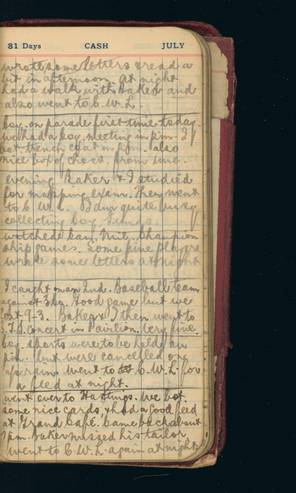 31 Days CASH JULY
wrote some letters & read a
bit in afternoon. at night
had a walk with Baker and
also went to C.W.L.
boy on parade first time today
had a boy meeting in p.m. I
got trench coat in p.m. also
nice box of chocs. from
evening Baker & I studied
for mapping exam. Then went
to C.W.L. I am quite busy
collecting boy
watched Can. Mil. Champion
ship games. Some fine players
wrote some letters at night
I caught on 2nd. Baseball team
against Good game but we
lost 9-3. Baker & I then went to
Concert in Pavilion. Very fine.
boy sports were to be held in
p.m. but were cancelled
went to C.W.L. for
a feed at night.
went over to Hastings. We got
some nice cards & had a good feed
at Grand Café. Came back about
7 p.m. Baker missed his tailor
went to C.W.L. again at night